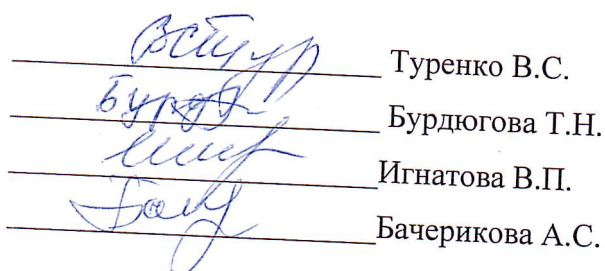 Туренко В.С.
Бурдюгова Т.Н.
Игнатова В.П.
Бачерикова А.С.